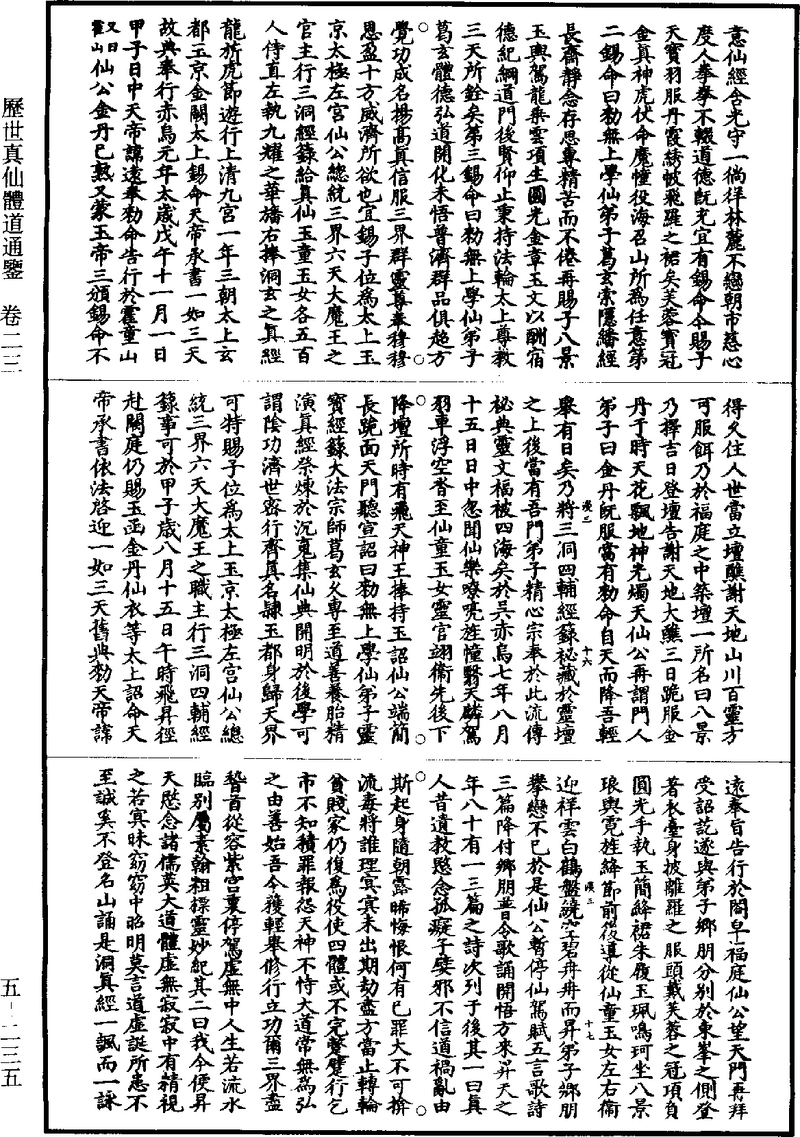 意仙經含光守一徜徉林麓不戀朝市慈心
度人拳拳不輟道德既充宜有錫命今賜子
天寶羽服丹霞綉帔飛羅之裙矣芙蓉寶冠
金真神虎伏命魔幢役海召山所為任意第
二錫命曰勑無上學仙弟子葛玄崇隱繙經
長齋靜念存思專精苦而不倦再賜子八景
玉輿駕龍乘雲項生圓光金章玉文以酬宿
德紀綱道門後賢仰止秉持法輪太上尊教
三天所銓矣第三錫命曰勑無上學仙弟子
葛玄體德弘道開化未悟普濟群品俱超方
覺功成名揚高真信服三界群靈尊奉穆穆
恩盈十方威濟所欲也宜錫子位為太上玉
京太極左宮仙公總統三界六天大魔王之
官主行三洞經籙給真仙玉童玉女各五百
人侍直左執九耀之華旛右捧洞玄之真經
龍旂虎節遊行上清九宮一年三朝太上玄
都玉京金闕太上錫命天帝承書一如三天
故典奉行赤烏元年太歲戊午十一月一日
甲子日中天帝諱遠奉勑命告行於霍童山
又曰霍山仙公金丹已熟又蒙玉帝三頒錫命不
得久住人世當立壇醮謝天地山川百靈方
可服餌乃於福庭之中築壇一所名曰八景
乃擇吉日登壇告謝天地大醮三日跪服金
丹于時天花飄地神光燭天仙公再謂門人
弟子曰金丹既服當有勑命自天而降吾輕
舉有日矣乃將三洞四輔經籙秘藏於靈壇
漢三 十六
之上後當有吾門弟子精心宗奉於此流傳
秘典靈文福被四海矣於吳赤烏七年八月
十五日日中忽聞仙樂嘹喨旌幢翳天麟駕
羽車浮空沓至仙童玉女靈官翊衞先後下
降壇所時有飛天神王捧持玉詔仙公端簡
長跪面天門聽宣詔曰勑無上學仙弟子靈
寶經籙大法宗師葛玄久專至道善養胎精
演真經祭煉於沉䰟集仙典開明於後學可
謂陰功濟世密行齊真名隷玉都身歸天界
可特賜子位為太上玉京太極左宮仙公總
統三界六天大魔王之職主行三洞四輔經
籙事可於甲子歲八月十五日午時飛昇徑
赴闕庭仍賜玉函金丹仙衣等太上詔命天
帝承書依法啓迎一如三天舊典勑天帝諱
遠奉旨告行於閤皁福庭仙公望天門再拜
受詔訖遂與弟子鄉朋分別於東峯之側登
著衣臺身披離羅之服頭戴芙蓉之冠項負
圓光手執玉簡絳裙朱履玉珮鳴珂坐八景
琅輿霓旌絳節前後導從仙童玉女左右衞
迎祥雲白鶴盤繞空碧冉冉而昇弟子鄉朋
漢三 十七
攀戀不已於是仙公暫停仙駕賦五言歌詩
三篇降付鄉朋普令歌誦開悟方來昇天之
年八十有一三篇之詩次列于後其一曰真
人昔遺教愍念孤癡子嬖邪不信道禍亂由
斯起身隨朝露晞悔恨何有已罪大不可揜
流毒將誰理冥冥未出期劫盡方當止轉輪
貧賤家仍復為役使四體或不完蹩躄行乞
市不知積罪報怨天神不恃大道常無為弘
之由善始吾今獲輕舉修行立功爾三界盡
稽首從容紫宮裏停駕虛無中人生若流水
臨別屬素翰粗標靈妙紀其二曰我今便昇
天愍念諸儒英大道體虛無寂寂中有精視
之若冥昧窈窈中昭明莫言道虛誕所患不
至誠奚不登名山誦是洞真經一諷而一詠
歷世真仙體道通鑒 卷二三
五－二三五